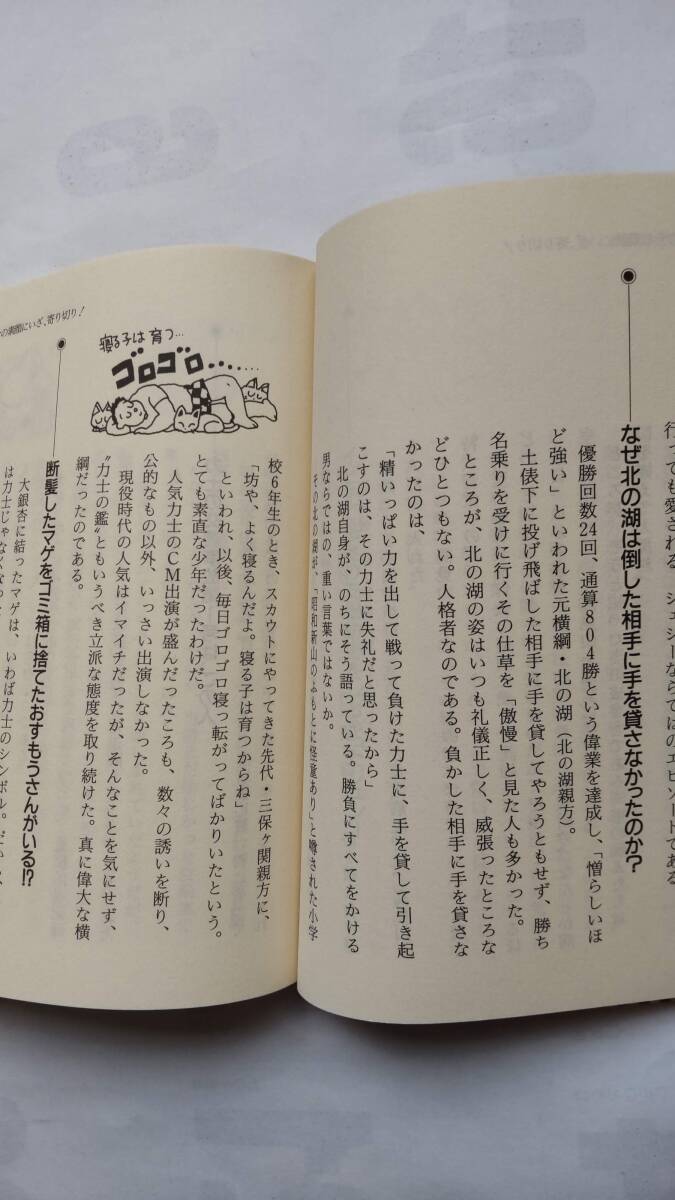 行っても愛される、ジェシーならではのエピソードである
なぜ北の湖は倒した相手に手を貸さなかったのか?
優勝回数24回、通算804勝という偉業を達成し、「憎らしいほ
ど強い」といわれた元横綱・北の湖(北の湖親方)。
土俵下に投げ飛ばした相手に手を貸してやろうともせず、勝ち
名乗りを受けに行くその仕草を「傲慢」と見た人も多かった。
ところが、北の湖の姿はいつも礼儀正しく、威張ったところな
どひとつもない。人格者なのである。負かした相手に手を貸さな
かったのは、
「精いっぱい力を出して戦って負けた力士に、手を貸して引き起
こすのは、その力士に失礼だと思ったから」
北の湖自身が、のちにそう語っている。勝負にすべてをかける
男ならではの、重い言葉ではないか。
その北の湖が、「昭和新山のふもとに怪童あり」と噂された小学
の裏側にいざ、寄り切り!
寝る子は育つ…
ゴロゴロ……
校6年生のとき、スカウトにやってきた先代・三保ヶ関親方に、
「坊や、よく寝るんだよ。寝る子は育つからね」
といわれ、以後、毎日ゴロゴロ寝っ転がってばかりいたという。
とても素直な少年だったわけだ。
人気力士のCM出演が盛んだったころも、数々の誘いを断り、
公的なもの以外、いっさい出演しなかった。
現役時代の人気はイマイチだったが、そんなことを気にせず、
〝力士の鑑〟ともいうべき立派な態度を取り続けた。真に偉大な横
綱だったのである。
断髪したマゲをゴミ箱に捨てたおすもうさんがいる!?
大銀杏に結ったマゲは、いわば力士のシンボル。
は力士じゃなくなった